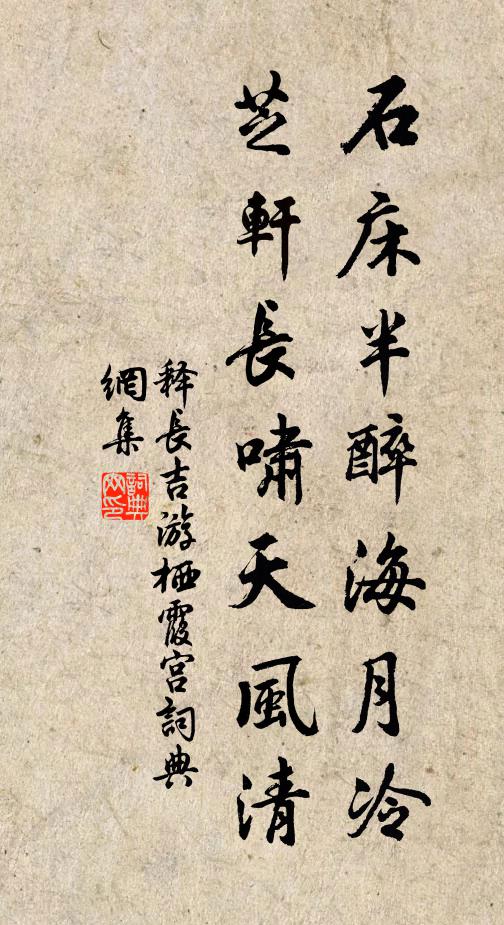 石床半醉海月冷
芝軒長嘯天風清
释長吉游栖霞宫詞典
網集
詞典網印